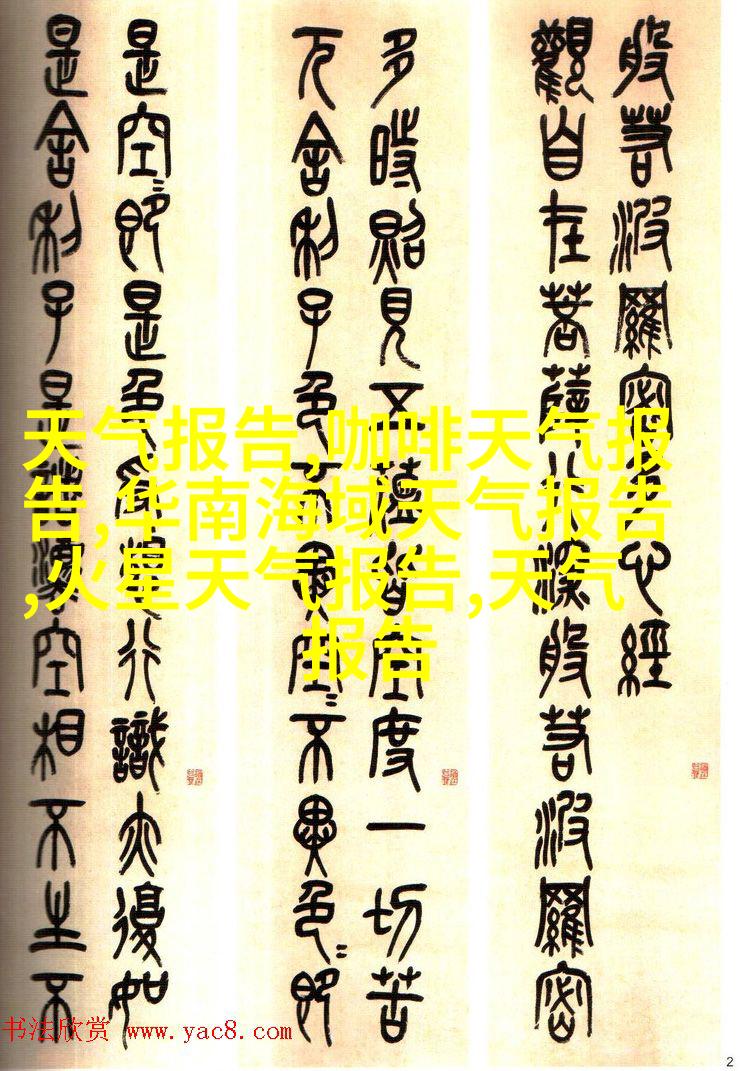 般若波羅密多心經
觀自在菩薩行深般若波羅密
多時照見五蘊皆空度一切苦
厄舍利子色不異空〻不異色〻即
是空〻即是色受想行識亦復如
是舍利子是諸灋空相不生不
天气报告,咖啡天气报
告,华南海域天气报告
,火星天气报告,天气
报告
书法欣赏 www.yac8.com
2